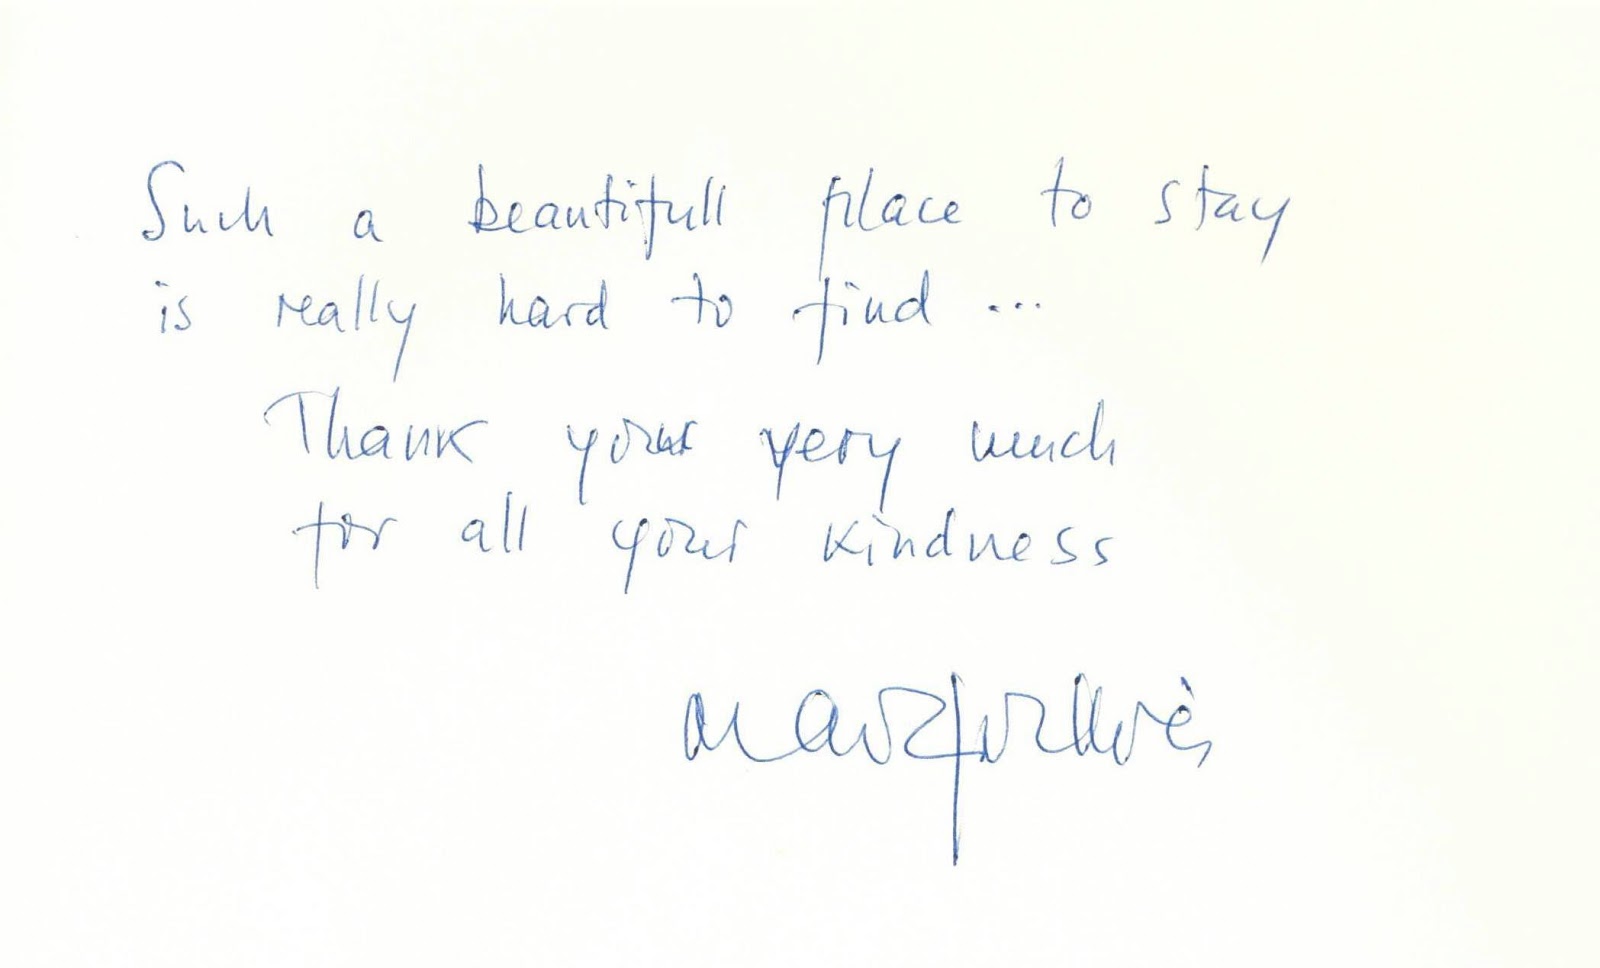 Such a beautifull place to stay
is really hard to find ...
Thank your very much
for all your kindness